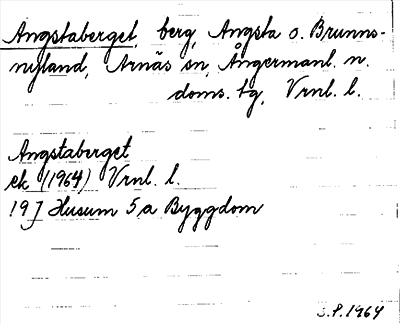 Angstaberget, berg, Angsta o. Brunns-
nyland, Arnäs sn, Ångermanl. n.
doms. tg, Vrnl. l.
Angstaberget
ek (1964) Vrnl. l.
19J Husum 5a Byggdom
S.P. 1964